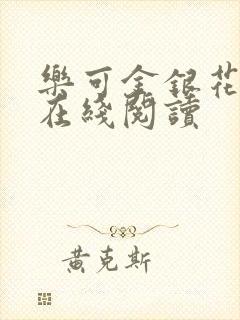 樂可金銀花
在綫閱讀
黃克斯